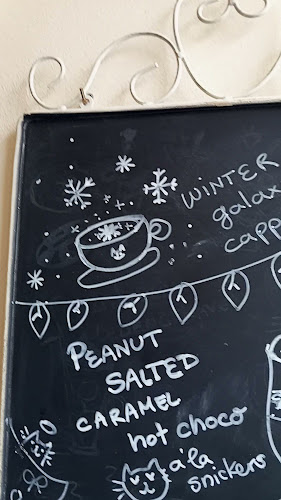 WINTER
galax
capp
PEANUT
SALTED
CARAMEL
hot choco
a'la
snickers